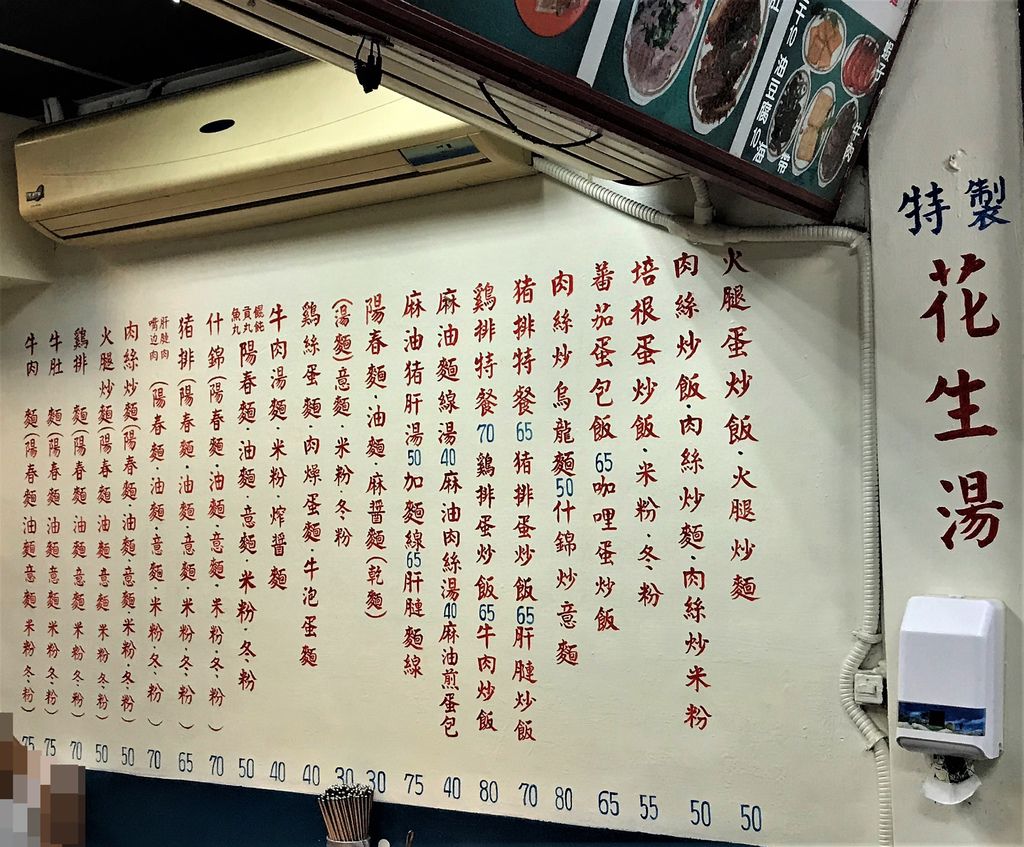 特製
花生湯
火腿蛋炒飯·火腿炒麵 50
肉絲炒飯·肉絲炒麵·肉絲炒米粉 50
培根蛋炒飯·米粉·冬粉 55
蕃茄蛋包飯65咖哩蛋炒飯 65
肉絲炒烏龍麵50什錦炒意麵 80
猪排特餐65猪排蛋炒飯65肝腱炒飯 70
鷄排特餐70鷄排蛋炒飯65牛肉炒飯 80
麻油麵線湯40麻油肉絲湯40麻油煎蛋包 40
麻油猪肝湯50加麵線65肝腱麵線 75
陽春麵·油麵·麻醬麵(乾麵) 30
(湯麵)意麵·米粉冬粉 30
鷄絲蛋麵·肉燥蛋麵·牛泡蛋麵 40
牛肉湯麵·米粉·炸醬麵 40
餛飩貢丸魚丸陽春麵·油麵·意麵·米粉·冬粉 50
什錦(陽春麵·油麵·意麵·米粉·冬粉) 70
猪排(陽春麵·油麵·意麵·米粉·冬粉) 65
肝腱肉嘴边肉(陽春麵·油麵·意麵·米粉·冬粉) 70
肉絲炒麵(陽春麵·油麵·意麵·米粉·冬粉) 50
火腿炒麵(陽春麵油麵意麵米粉冬粉) 50
鷄排 麵(陽春麵油麵意麵米粉冬粉) 70
牛肚 麵(陽春麵油麵意麵米粉冬粉) 75
牛肉 麵(陽春麵油麵意麵米粉冬粉) 75
牛肉